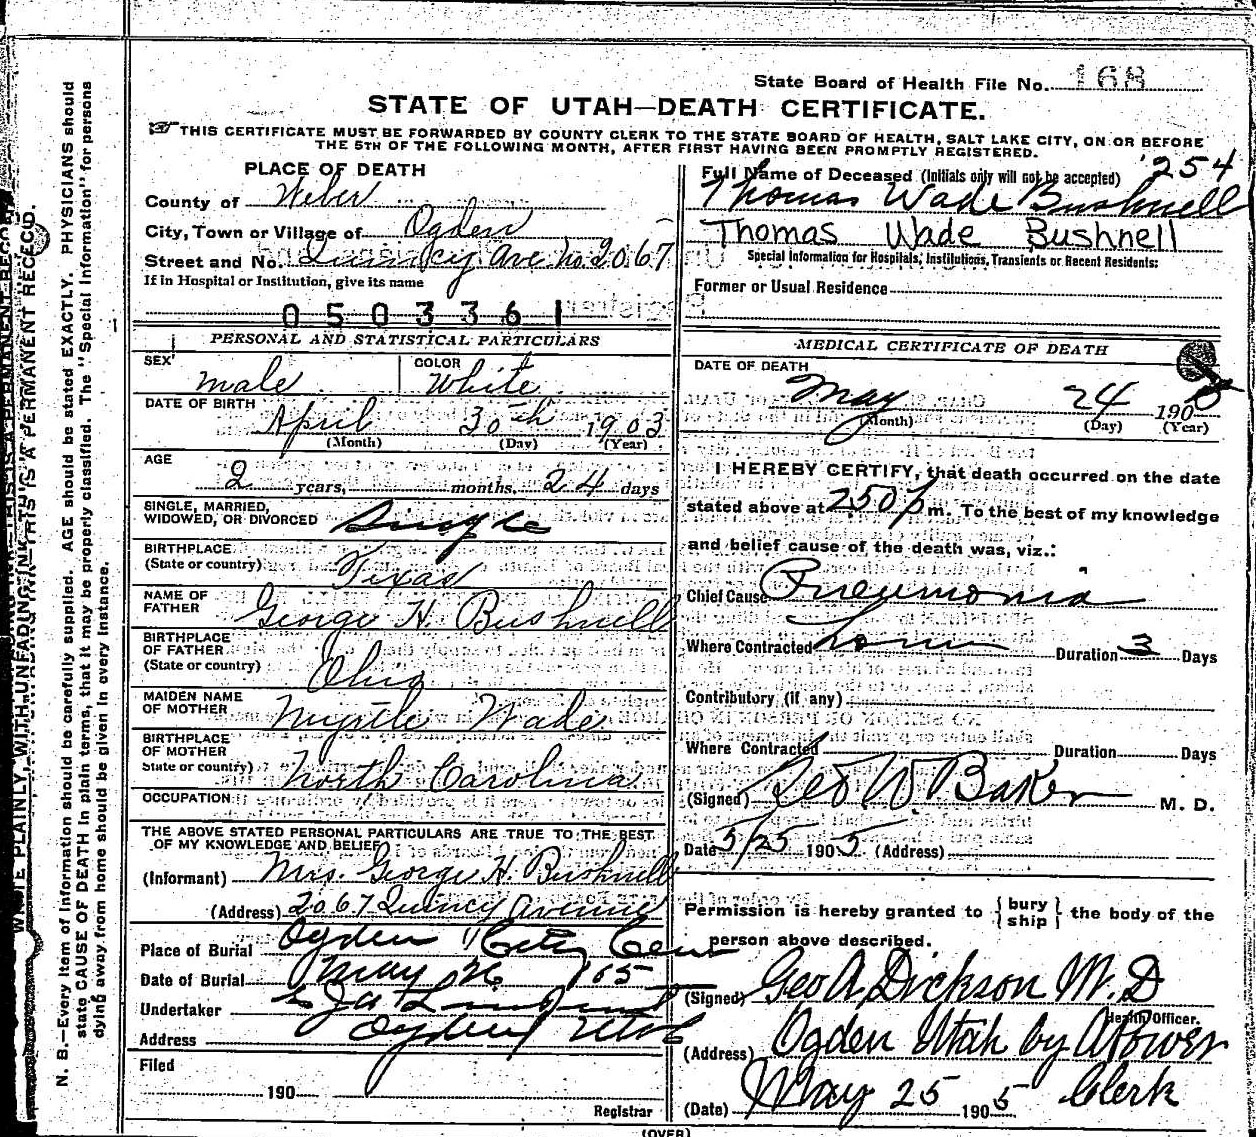 State Board of Health File No. 168
STATE OF UTAH—DEATH CERTIFICATE.
THIS CERTIFICATE MUST BE FORWARDED BY COUNTY CLERK TO THE STATE BOARD OF HEALTH, SALT LAKE CITY, ON OR BEFORE
THE 5TH OF THE FOLLOWING MONTH, AFTER FIRST HAVING BEEN PROMPTLY REGISTERED.
PLACE OF DEATH
County of Weber
City, Town or Village of Ogden
Street and No. Quincy Ave No. 2067
If in Hospital or Institution, give its name
0503361
254
Full Name of Deceased (Initials only will not be accepted)
Thomas Wade Bushnell
Thomas Wade Bushnell
Special Information for Hospitals, Institutions, Transients or Recent Residents:
Former or Usual Residence
PERSONAL AND STATISTICAL PARTICULARS
SEX male COLOR White
DATE OF BIRTH April 30th 1903
(Month) (Day) (Year)
AGE 2 years, months, 24 days
SINGLE, MARRIED,
WIDOWED, OR DIVORCED Single
BIRTHPLACE
(State or country) Texas
NAME OF
FATHER George H. Bushnell
BIRTHPLACE
OF FATHER
(State or country) Ohio
MAIDEN NAME
OF MOTHER Myrtle Wade
BIRTHPLACE
OF MOTHER
State or country) North Carolina
OCCUPATION
THE ABOVE STATED PERSONAL PARTICULARS ARE TRUE TO THE BEST
OF MY KNOWLEDGE AND BELIEF
(Informant) Mrs. George H. Bushnell
(Address) 2067 Quincy Avenue
Place of Burial Ogden City Cem
Date of Burial May 26
Undertaker
Address Ogden Utah
Filed
190
Registrar
MEDICAL CERTIFICATE OF DEATH
DATE OF DEATH
May 24 190
(Month) (Day) (Year)
I HEREBY CERTIFY, that death occurred on the date
stated above at 2:50 p m. To the best of my knowledge
and belief cause of the death was, viz.:
Chief Cause Pneumonia
Where Contracted Duration 3 Days
Contributory (if any)
Where Contracted Duration Days
(Signed) Geo W. Baker M. D.
Date 5/25 1905 (Address)
Permission is hereby granted to { bury
ship } the body of the
person above described.
(Signed) Geo A Dickson M.D
Health Officer.
(Address) Ogden Utah by
Clerk
(Date) May 25 1905
(OVER)
N. B.—Every item of information should be carefully supplied. AGE should be stated EXACTLY. PHYSICIANS should
state CAUSE OF DEATH in plain terms, that it may be properly classified. The "Special Information" for persons
dying away from home should be given in every instance.
WRITE PLAINLY, WITH UNFADING INK—THIS IS A PERMANENT RECORD.